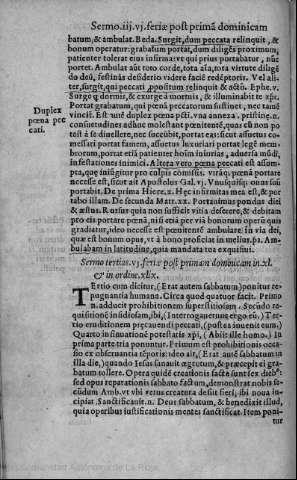 Sermo.iij.vj.feriæ post primā dominicam
batum, & ambulat. Beda. Surgit, dum peccata relinquit, &
bonum operatur: grabatum portat, dum diligēs proximum,
patienter tolerat eius infirmitates qui prius portabatur, nūc
portet. Ambulat aūt toto corde, tota aīa, tota virtute diligē
do deū, festinās desiderio videre faciē redēptoris. Vel ali-
ter, surgit, qui peccati propositum relinquit & actū. Ephe.v.
Surge q dormis, & exurge à mortuis, & illuminabit te xps.
Portat grabatum, qui pœnā peccatorum sustinet, nec tamē
Duplex pœna pec cati.
vincit. Est aūt duplex pœna pcti. vna annexa. pristinę. n.
consuetudines adhuc molestant pœnitentē, quas cum nō po
test à se diuellere, nec succūbit, portat eas: sicut assuetus co-
messari portat famem, assuetus luxuriari portat legē mem-
brorum, portat etiā patienter hoīm iniurias, aduersa mūdi,
infestationes inimici. Altera vero pœna peccati est assum-
pta, quę iniūgitur pro culpis cōmissis. vtrāq; pœnā portare
necesse est, sicut ait Apostolus Gal.vj. Vnusquisq; onus suū
portabit. De prima Hiere.x. Hęc infirmitas mea est, & por
tabo illam. De secunda Matt.xx. Portauimus pondus diei
& æstus. Rursus quia non sufficit vitia deserere, & debitam
pro eis portare pœnā, nisi etiā per viā bonorum operū quis
gradiatur, ideo necesse est pœnitentē ambulare. In via dei,
quæ est bonum opus, vt à bono proficiat in melius. ps. Am-
bulabam in latitudine, quia mandata tua exquisiui.
Sermo tertius.vj.feriæ post primam dominicam in.xl.
& in ordine.xlix.
TErtio cum dicitur, (Erat autem sabbatum) ponitur re-
pugnantia humana. Circa quod quatuor facit. Primo
n. adducit prohibitionem superstitiosam. Secūdo re-
quisitionē insidiosam, ibi, (Interrogauerunt ergo eū.) Ter-
tio eruditionem pręcauendi peccati, (post ea inuenit eum.)
Quarto insinuationē potestatis xpi, (Abijt ille homo.) In
prima parte tria ponuntur. Primum est prohibitionis occa-
sio ex obseruantia tēporis: ideo ait, (Erat autē sabbatum in
illa die,) quando Iesus sanauit ægrotum, & præcepit ei gra-
batum tollere. Opera quidē creationis facta sunt sex diebꝰ:
sed opus reparationis sabbato factum, demonstrat nobis se-
cūdum Amb. vt vbi vetus creatura desijt fieri, ibi noua in-
cipiat. Sanctificauit. n. Deus sabbatum, & benedixit illud,
quia operibus iustificationis mentes sanctificat. Item poni-
tur